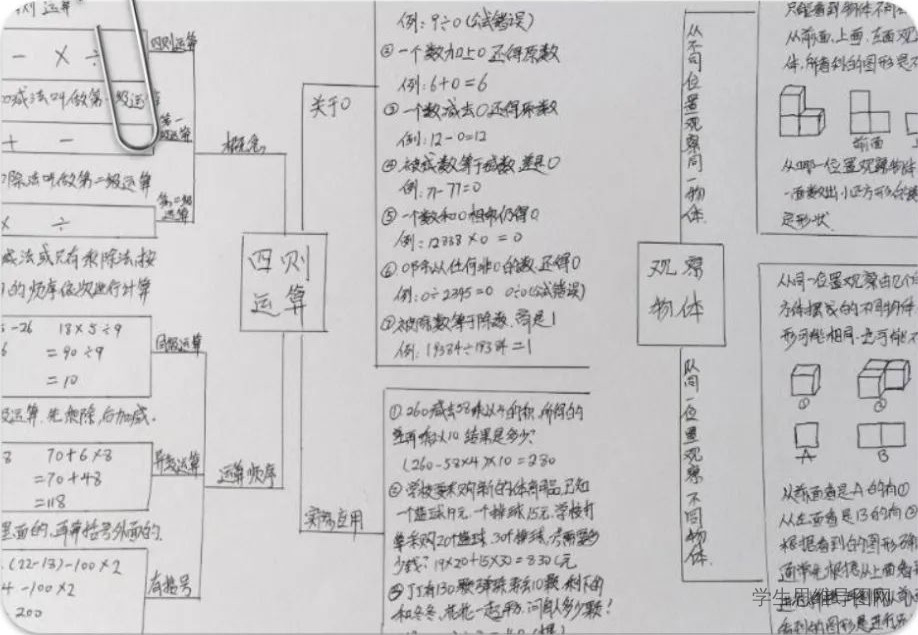 则运算
- × ÷
四则运算
减法叫做第一级运算
+ -
第一级运算
除法叫做第二级运算
× ÷
第二级运算
概念
减法或只有乘除法,按
的顺序依次进行计算
-26 18×5÷9
=90÷9
=10
同级运算
运算,先乘除,后加减.
70+6×8
=70+48
=118
异级运算
里面的,再算括号外面的.
(22-13)-100×2
-100×2
200
有括号
运算顺序
四则
运算
关于0
例:9÷0(公式错误)
②一个数加上0还得原数
例:6+0=6
③一个数减去0还得原数
例:12-0=12
④被减数等于减数,差是0
例:77-77=0
⑤一个数和0相乘仍得0
例:12338×0=0
⑥0除以任何非0的数,还得0
例:0÷2395=0 0÷0(公式错误)
⑦被除数等于除数,商是1
例:19384÷19384=1
实际应用
①260减去58乘以4的积,所得的
差再乘以10结果是多少?
(260-58×4)×10=280
②学校要采购新的体育用品,已知
一个篮球19元,一个排球15元,学校打
算采购20个篮球,30个排球,共需要多
少钱? 19×20+15×30=830(元)
③丁丁有130颗弹珠,弄丢10颗,剩下的
和冬冬,花花一起平分,问每人多少颗?
观察
物体
从不同位置观察同一物体.
从同一位置观察不同物体.
从前面,上面,左面观
体,所看到的图形是不
前面
从哪一位置观察物体
一面数出小正方形的数
定形状
从同一位置观察由几个
方体摆成的不同物体
形可能相同,也可能不
① ②
A B
从前面看是A的有①
从左面看是B的有②
根据看到的图形确
面学先根据从上面看
看到的图形是进行
学生思维导图网